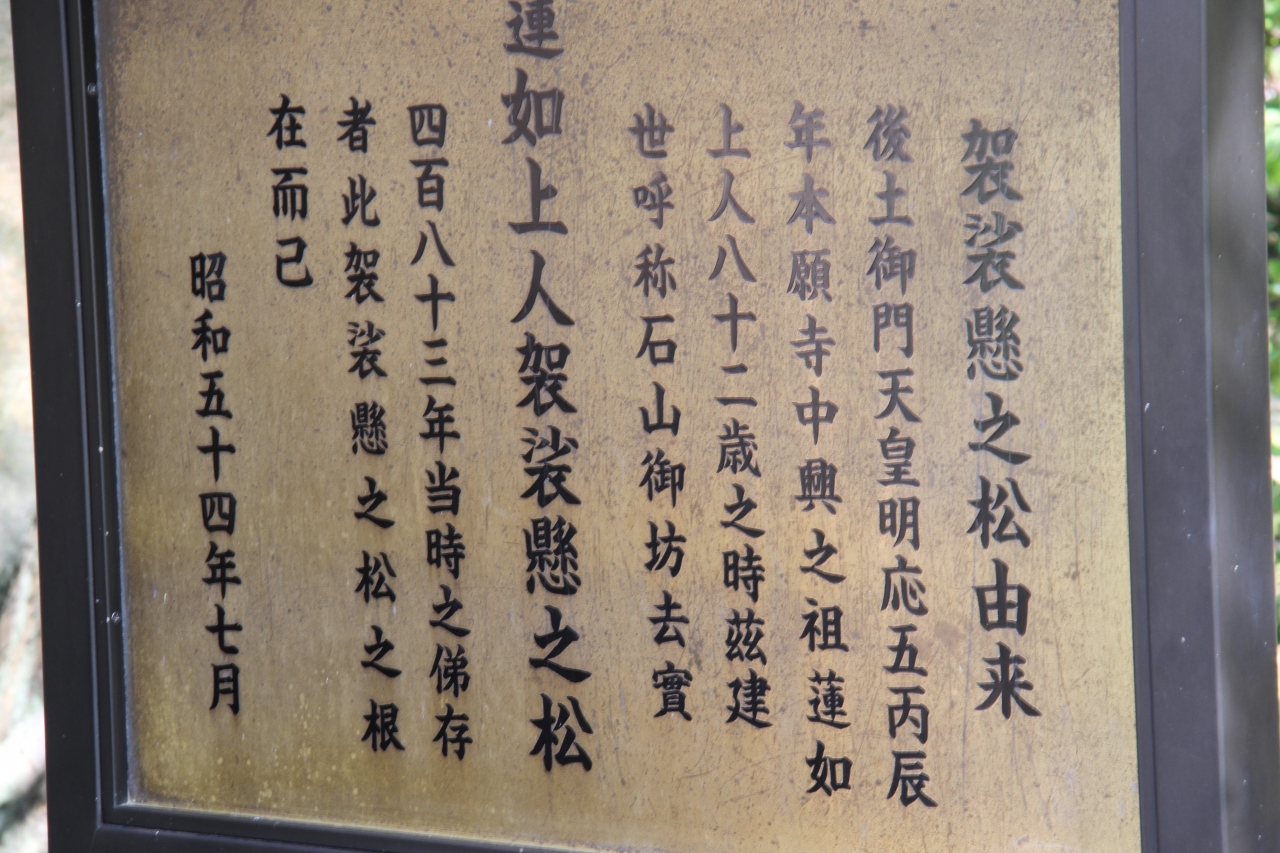 袈裟懸之松由来
後土御門天皇明応五丙辰
年本願寺中興之祖蓮如
上人八十二歳之時茲建
世呼称石山御坊去實
蓮如上人袈裟懸之松
四百八十三年当時之俤存
者此袈裟懸之松之根
在而已
昭和五十四年七月